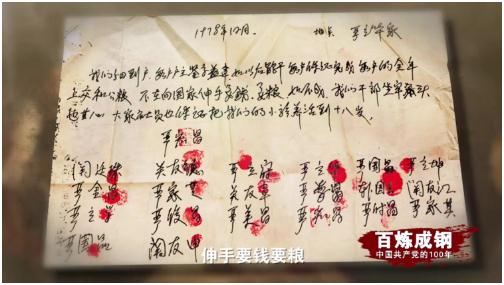 1978年12月. 地点 严立华家
我们分田到户,每户户主签字盖章,如以后能干,每户保证完成每户的全年
上交和公粮,不在向国家伸手要钱,要粮,如不成,我们干部坐牢杀头
也甘心,大家社员也保证把我们的小孩养活到十八岁.
严宏昌
关廷珠 关友德 严立富 严立华 严国昌 严立坤
严金昌 严家芝 关友章 严学昌 韩国云 关友江
严立学 严俊昌 严美昌 严付昌 严家其
严国品 关友申
百炼成钢
中国共产党的100年
伸手要钱要粮